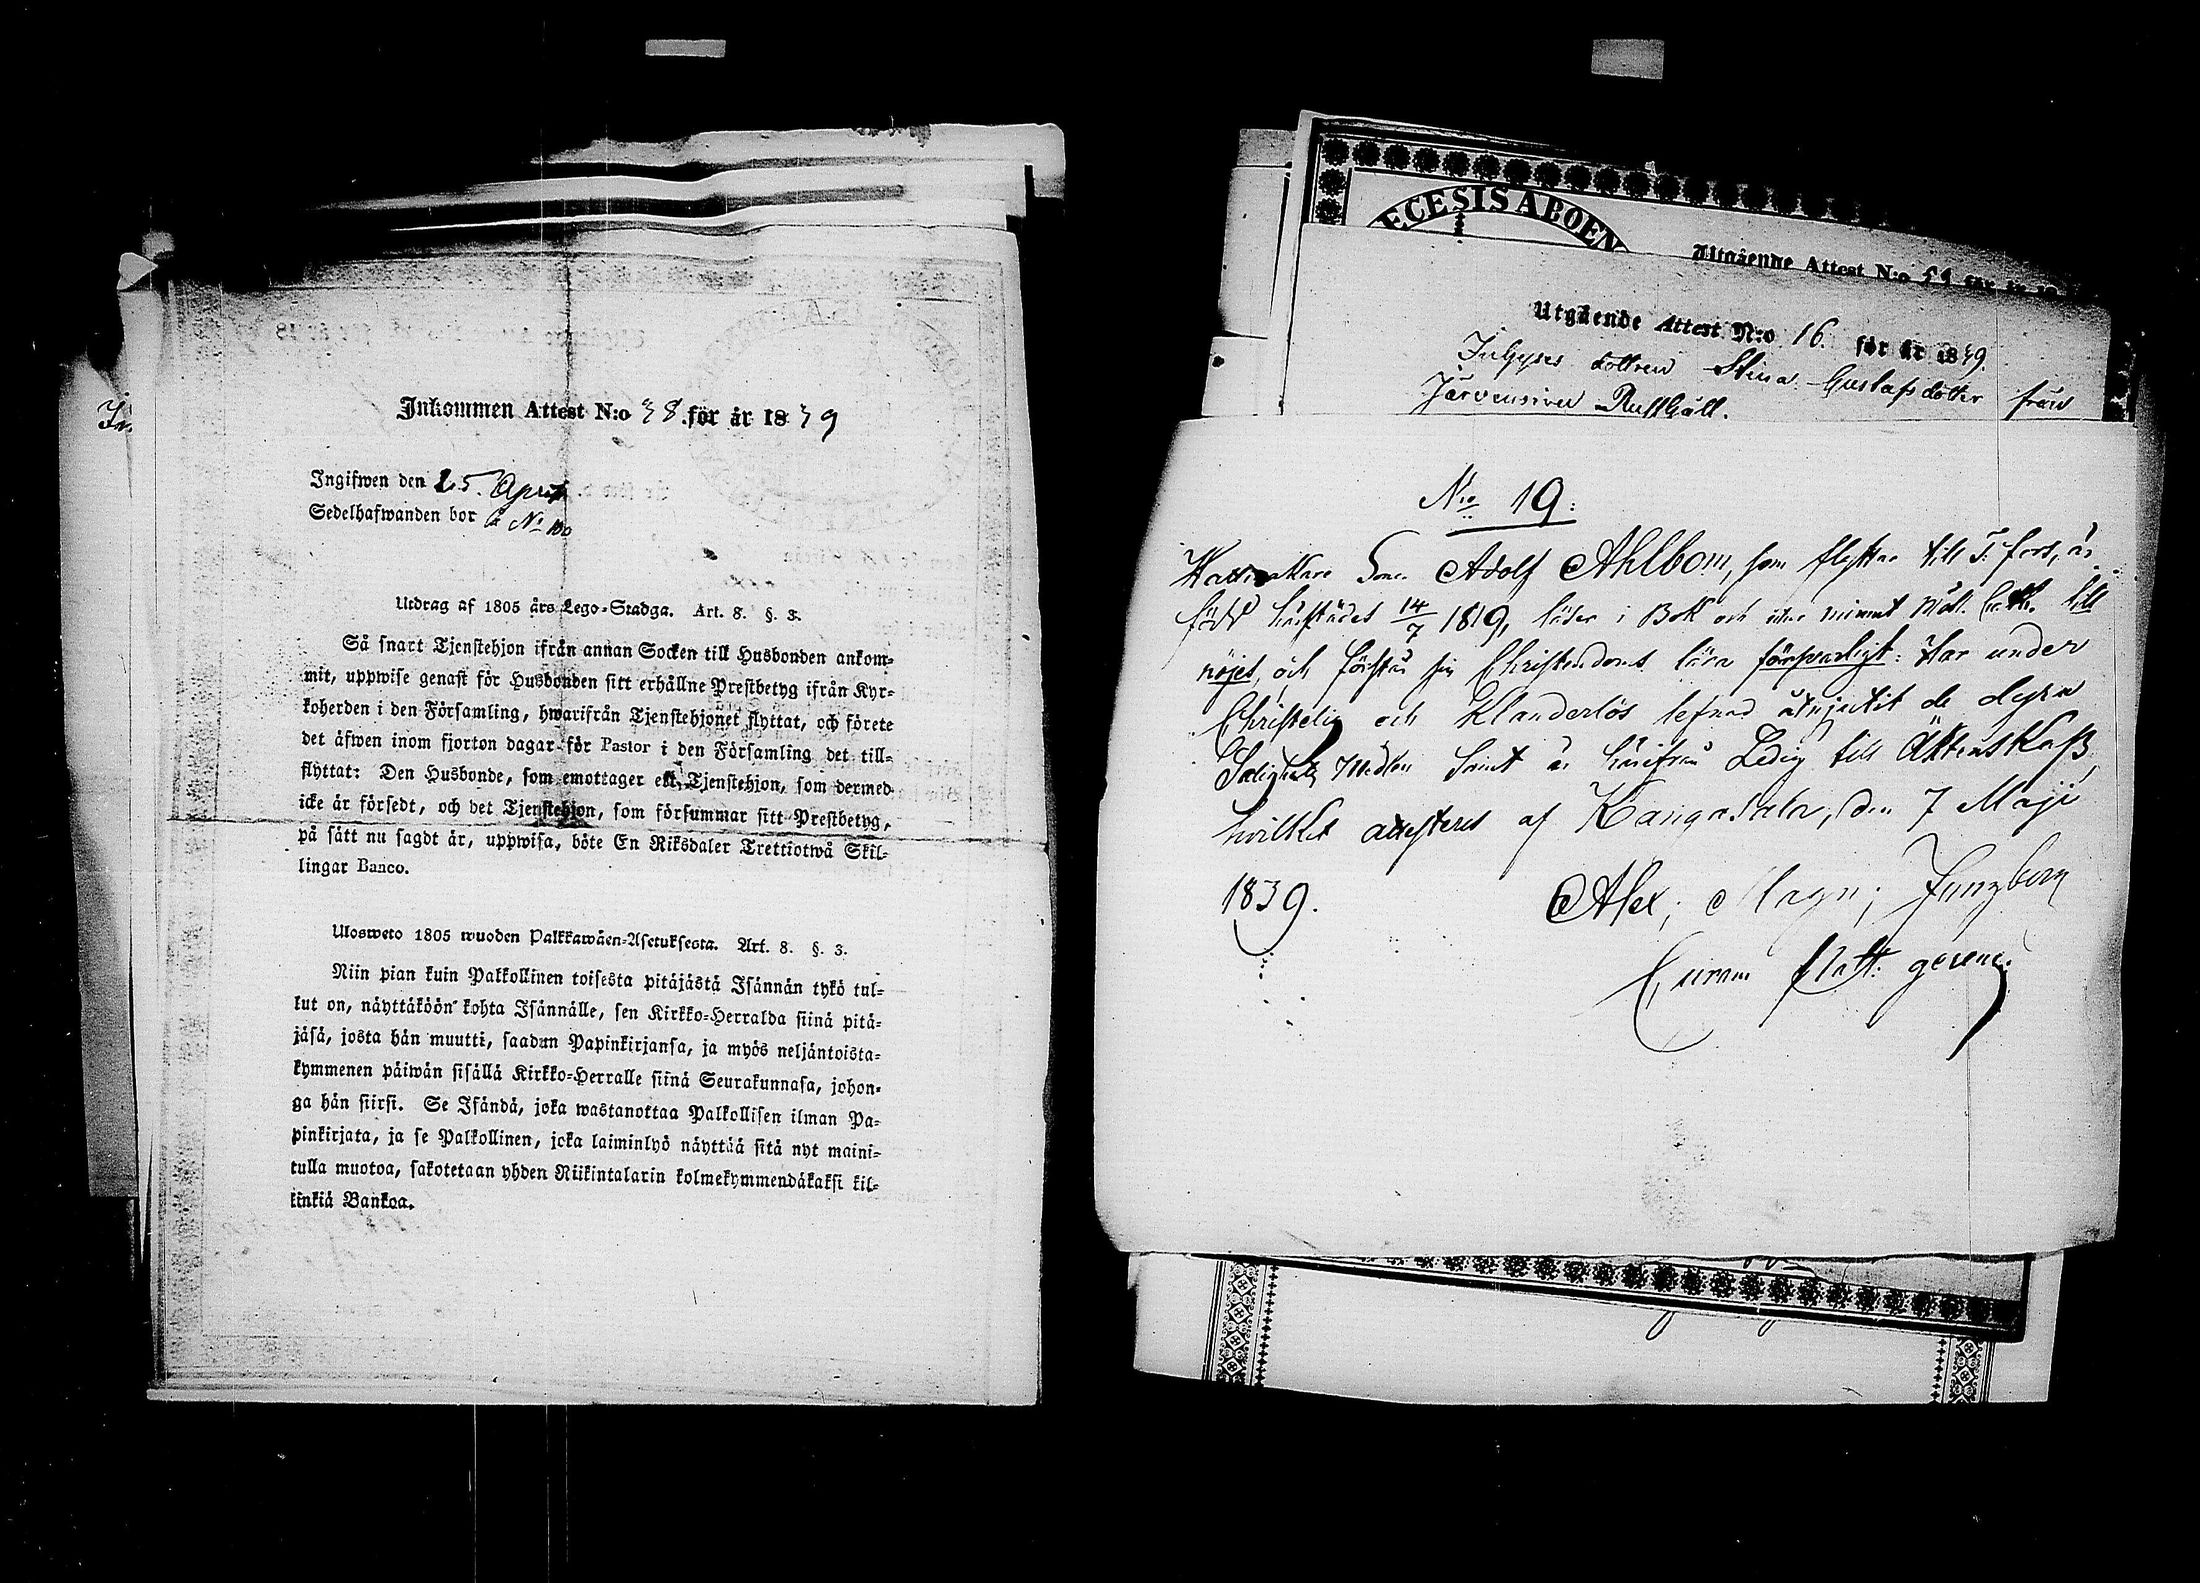 Inkommen Attest N:o 38 för år 1839
Ingifwen den 25. April
Sedelhafwanden bor å No 100
Utdrag af 1805 års Lego-Stadga. Art. 8. §. 3.
Så snart Tjenstehjon ifrån annan Socken till Husbonden ankom-
mit, uppwise genast för Husbonden sitt erhållne Prestbetyg ifrån Kyr-
koherden i den Församling, hwarifrån Tjenstehjonet flyttat, och förete
det äfwen inom fjorton dagar för Pastor i den Församling det till-
flyttat: Den Husbonde, som emottager ett Tjenstehjon, som dermed
icke är försedt, och det Tjenstehjon, som försummar sitt Prestbetyg,
på sätt nu sagdt är, uppwisa, böte En Riksdaler Trettiotwå Skil-
lingar Banco.
Ulosweto 1805 wuoden Palkkawäen-Asetuksesta. Art. 8. §. 3.
Niin pian kuin Palkollinen toisesta pitäjästä Isännän tykö tul-
lut on, näyttäköön kohta Isännälle, sen Kirkko-Herralda siinä pitä-
jäsä, josta hän muutti, saadun Papinkirjansa, ja myös neljäntoista-
kymmenen päiwän sisällä Kirkko-Herralle siinä Seurakunnasa, johon-
ga hän siirsi. Se Isändä, joka wastanottaa Palkollisen ilman Pa-
pinkirjata, ja se Palkollinen, joka laiminlyö näyttää sitä nyt maini-
tulla muotoa, sakotetaan yhden Riikintalarin kolmekymmendäkaksi kil-
linkiä Bankoa.
ECESIS ABOEN
Utgående Attest N:o 51 för år 18
Utgående Attest N:o 16. för år 1839.
dottren Stina Gustafsdotter från
Järvensivu Rusthåll.
No 19:
Son Adolf Ahlbom, som flyttar till T:fors, är
född härstädes 14/7 1819, läser i Bok och utur minnet till
nöjes, och förstår sin Christendoms lära försvarligt: Har under
Christelig och Klanderlös lefnad åtnjutit de dyra
Salighets Medlen samt är härifrån Ledig till Äktenskap,
hvilket attesteras af Kangasala, den 7 Maji
1839. Alex; Magn; Ljungberg